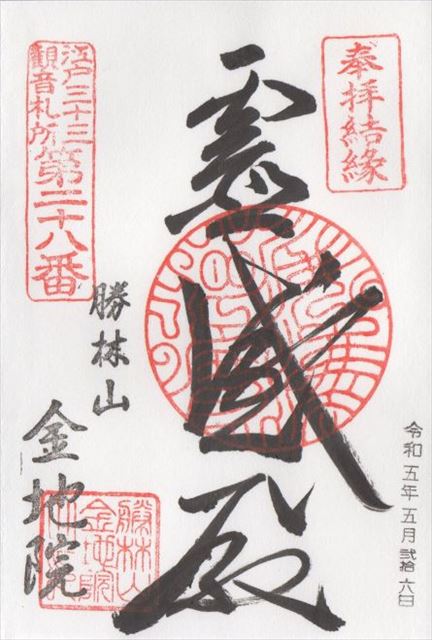 奉拝結縁
霊感殿
江戸三十三
觀音札所
第二十八番
勝林山
金地院
勝林山
金地院
令和五年五月弐拾六日